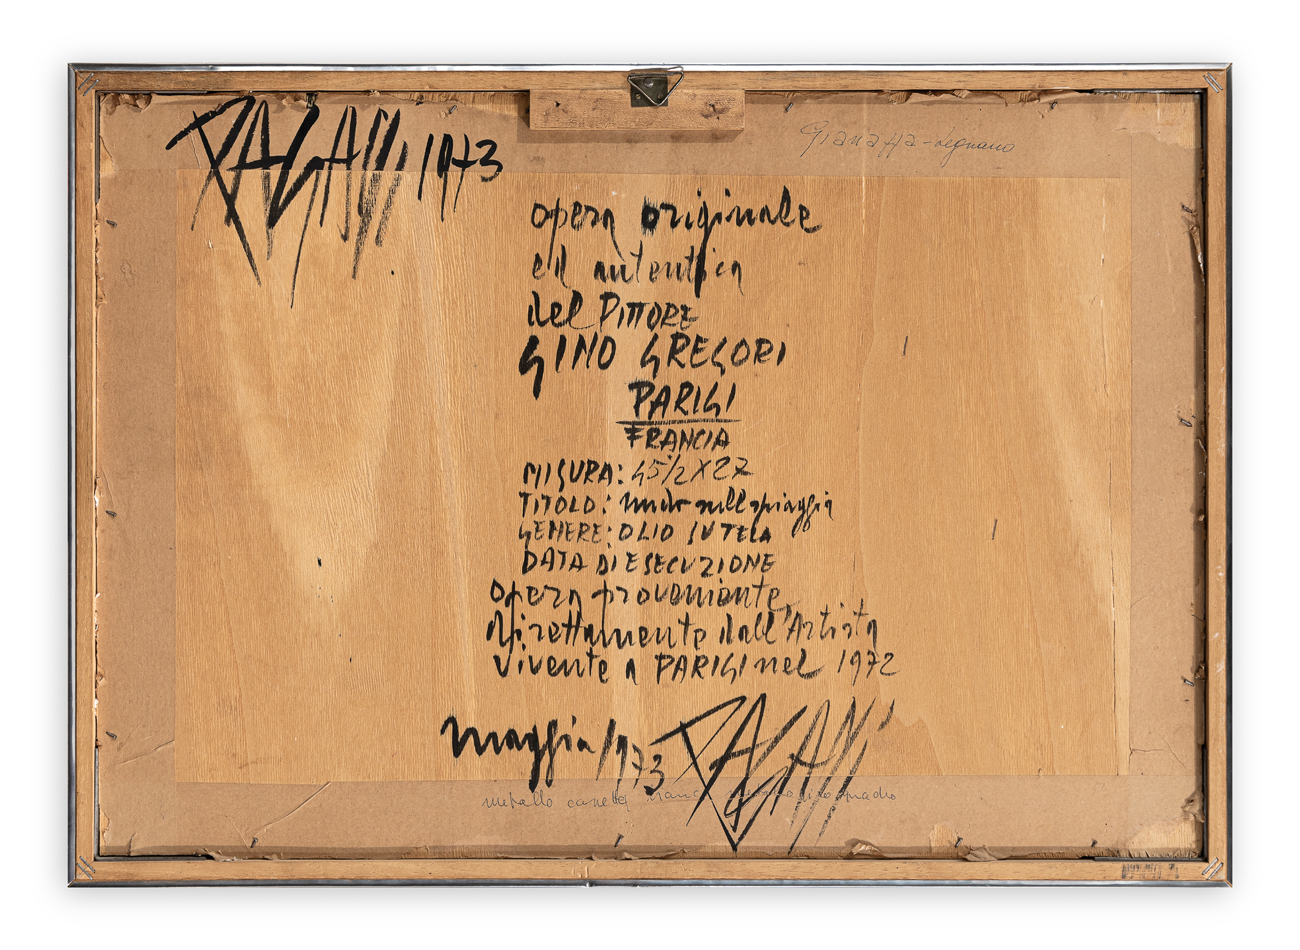 PAGANI 1973
Gianazza - Legnano
opera originale
ed autentica
del PITTORE
GINO GREGORI
PARIGI
FRANCIA
MISURA: 45½ X 27
TITOLO: nudo sulla spiaggia
GENERE: OLIO SU TELA
DATA DI ESECUZIONE
opera proveniente
direttamente dall'Artista
vivente a PARIGI nel 1972
maggio 1973 PAGANI
metallo